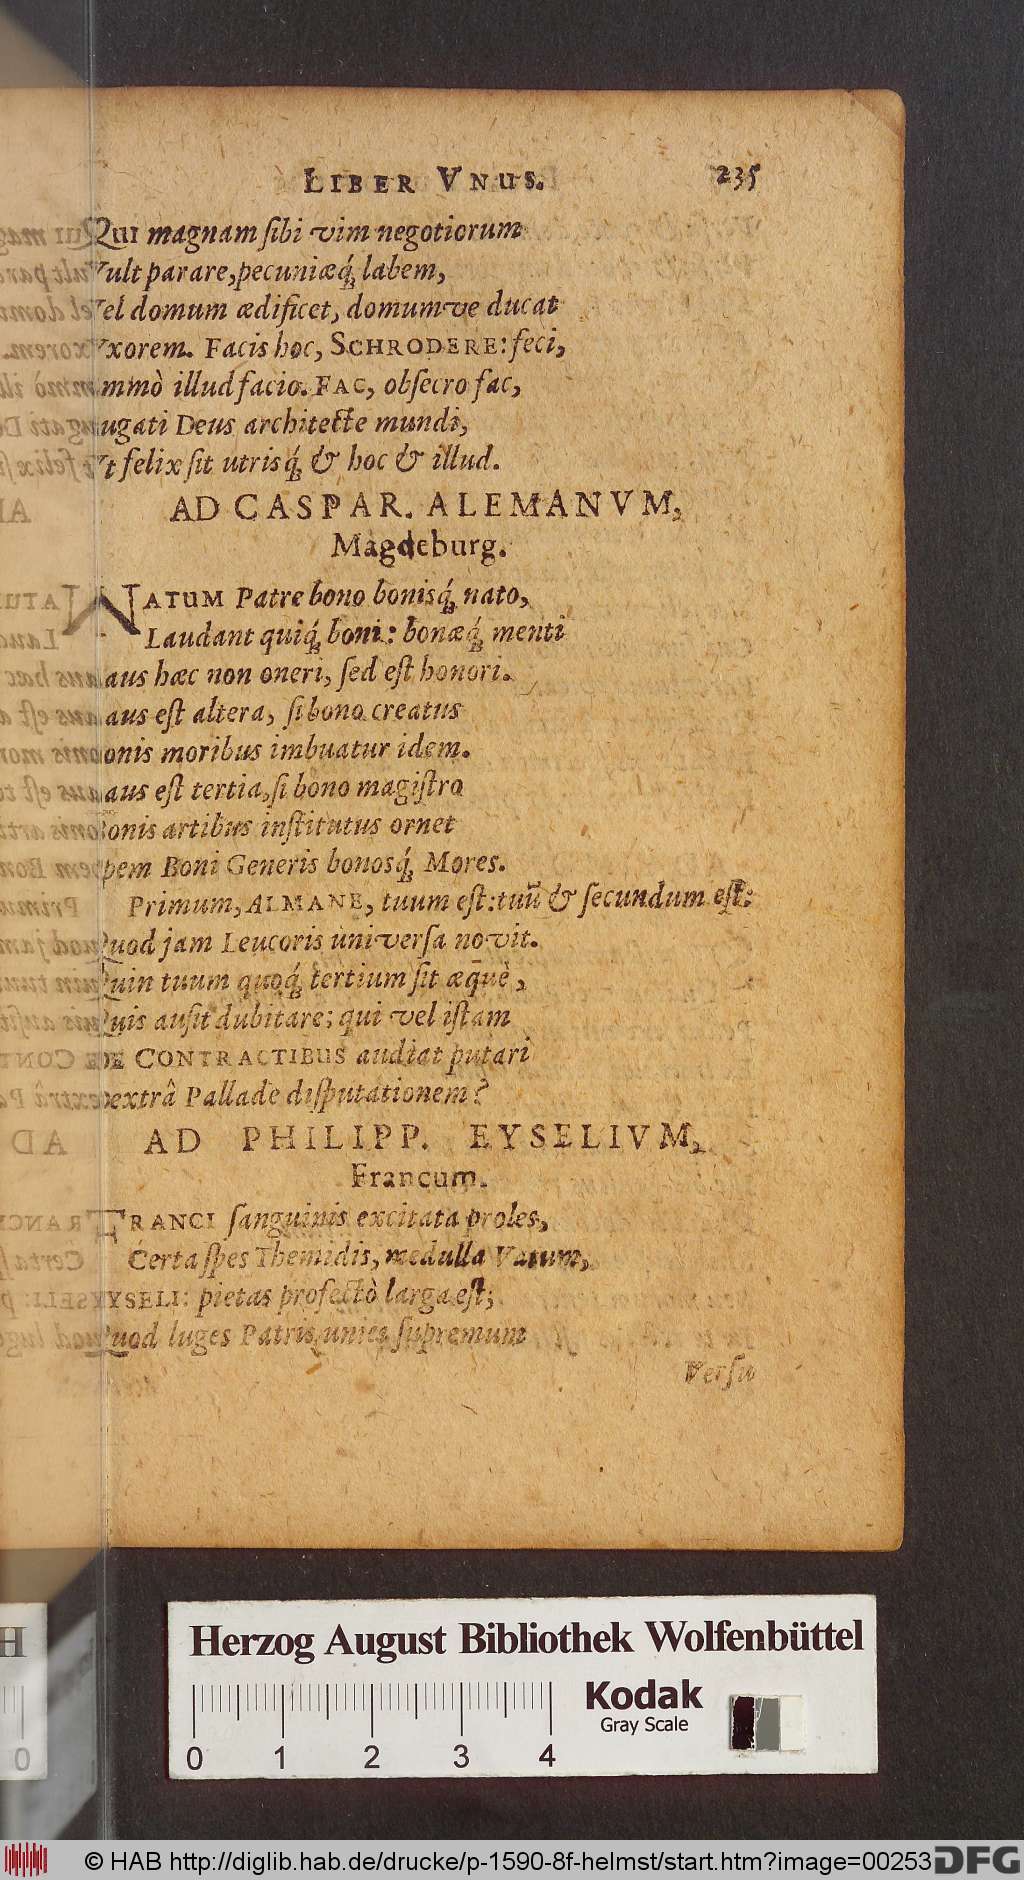 LIBER VNUS. 235
QUI magnam sibi vim negotiorum
Vult parare, pecuniæq́; labem,
Vel domum ædificet, domumve ducat
Vxorem. Facis hoc, SCHRODERE: feci,
immò illud facio. FAC, obsecro fac,
jugati Deus architecte mundi,
Vt felix sit utrisq́; & hoc & illud.
AD CASPAR. ALEMANVM,
Magdeburg.
NATUM Patre bono bonisq́; nato,
Laudant quiq́; boni: bonæq́; menti
Laus hæc non oneri, sed est honori.
Laus est altera, si bono creatus
Bonis moribus imbuatur idem.
Laus est tertia, si bono magistro
Bonis artibus institutus ornet
Spem Boni Generis bonosq́; Mores.
Primum, ALMANE, tuum est: tuū & secundum est:
Quod jam Leucoris universa novit.
Quin tuum quoq́; tertium sit æq̄uè,
Quis ausit dubitare; qui vel istam
DE CONTRACTIBUS audiat putari
Dextrâ Pallade disputationem?
AD PHILIPP. EYSELIVM,
Francum.
FRANCI sanguinis excitata proles,
Certa spes Themidis, medulla Vatum,
EYSELI: pietas profectò larga est;
Quod luges Patris unies supremum
Versu
Herzog August Bibliothek Wolfenbüttel
Kodak
Gray Scale
0 1 2 3 4
0
© HAB http://diglib.hab.de/drucke/p-1590-8f-helmst/start.htm?image=00253
DFG